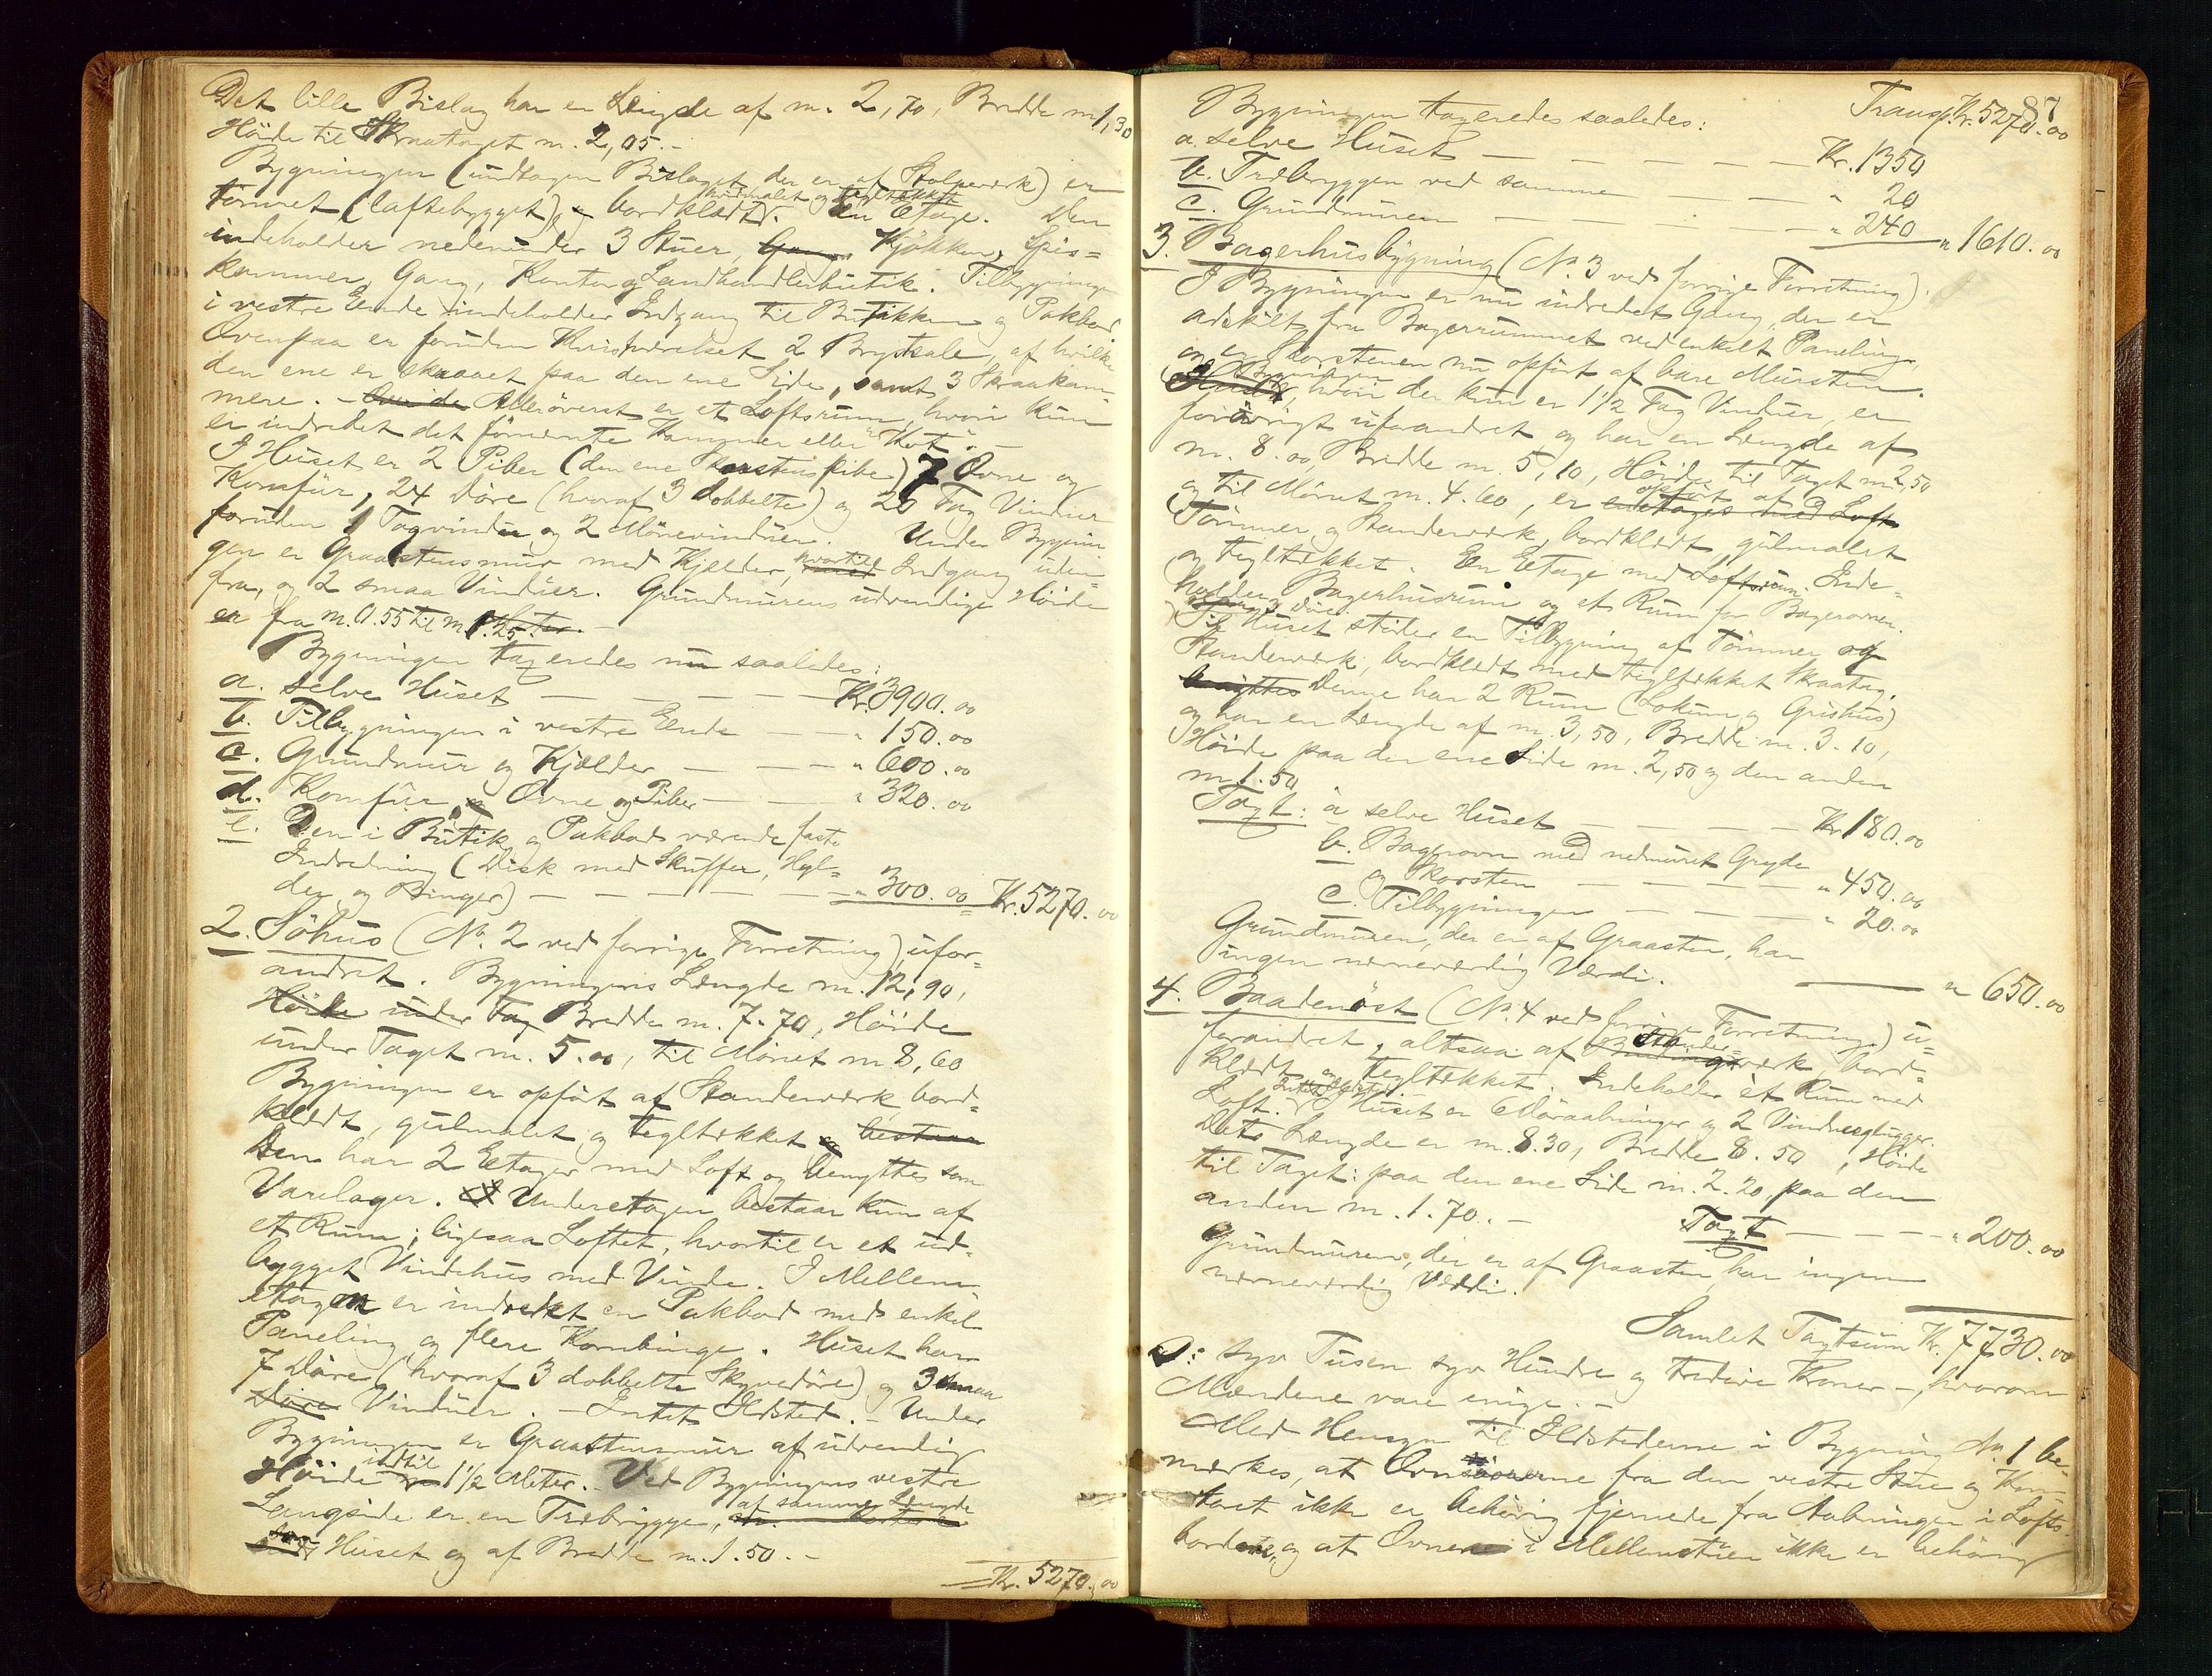 Det lille Bislag har en Længde af m. 2,70, Bredde m 1,30
Høide til Skraataget m. 2,05. -
Bygningen (undtagen Bislaget, der er af Stolpeværk) er
hvidmalet og tegltækket
tømret (laftebygget), bordklædt. Een Etage. Den
indeholder nedenunder 3 Stuer, Gang Kjøkken, Spis=
kammer, Gang, Kontor og Landhandlerbutik. Tilbygningen
i vestre Ende indeholder Indgang til Butikken og Pakbod
Ovenpaa er foruden Kvistværelset 2 Brystsale, af hvilke
den ene er skraaet paa den ene Side, samt 3 Skraakam=
mere. - Over de Allerøverst er et Loftsrum, hvori kun
er indredet det førnævnte Kammer eller "Kot". -
I Huset er 2 Piber (den ene Skorstenspibe) 7 Ovne og
Komfur, 24 Døre (hvoraf 3 dobbelte) og 20 Fag Vinduer
foruden 1 Tagvindu og 2 Mønevinduer. Under Bygnin
gen er Graastensmur med Kjælder, hvortil Indgang uden=
fra, og 2 smaa Vinduer. Grundmurens udvendige Høide
er fra m. 0.55 til m. 1.25 Meter. -
Bygningen taxeredes nu saaledes:
a. selve Huset — — — — Kr. 3900.00
b. Tilbygningen i vestre Ende — — " 150.00
c. Grundmur og Kjælder — — — " 600.00
d. Komfur, Ovne og Piber — — " 320.00
e. Den i Butik og Pakbod værende faste
Indredning (Disk med Skuffer, Hyl=
der og Binger) — — — — — " 300.00 Kr. 5270.00
2. Søhus (No. 2 ved forrige Forretning), ufor=
andret. Bygningens Længde m. 12,90,
Høide under Tag Bredde m. 7.70, Høide
under Taget m. 5.00, til Mønet m 8,60
Bygningen er opført af Standerværk, bord=
klædt, gulmalet og tegltækket og bestaar
Den har 2 Etager med Loft og benyttes som
Varelager. Underetagen bestaar kun af
et Rum; ligesaa Loftet, hvortil er et ud=
bygget Vindehus med Vinde. I Mellem
etagen er indredet en Pakbod med enkel
Paneling og flere Kornbinge. Huset har
7 Døre (hvoraf 3 dobbelte Skyvedøre) og 3 smaa
Døre Vinduer. - Intet Ildsted. - Under
Bygningen er Graastensmur af udvendig
indtil
Høide m 1 1/2 Meter. Ved Bygningens vestre
af samme Længde
Langside er en Træbrygge,
som Huset og af Bredde m. 1.50. -
Kr. 5270.00
87
Transp. Kr. 5270.00
Bygningen taxeredes saaledes:
a. selve Huset — — — — — Kr. 1350
b. Træbryggen ved samme — — " 20
c. Grundmuren — — — — — " 240 " 1610.00
3. Bagerhusbygning (No. 3 ved forrige Forretning).
I Bygningen er nu indredet Gang, der er
adskilt fra Bagerrummet ved enkelt Paneling
og er Skorstenen nu opført af bare Mursten.
Bygningen
hvori der kun er 1 1/2 Fag Vinduer, er
forøvrigt uforandret og har en Længde af
m. 8.00, Bredde m. 5,10, Høide til Taget m 2,50
opført af
og til Mønet m. 4.60, er enetages med Loft
Tømmer og Standerværk, bordklædt, gulmalet
og tegltækket. Een Etage med Loftsrum. Inde=
holder Bagerhusrum og et Rum for Bagerovnen.
Døre.
Til Huset støder en Tilbygning af Tømmer og
Standerværk, bordklædt med tegltækket Skraatag.
benyttes Denne har 2 Rum (Lokum og Grishus)
og har en Længde af m. 3,50, Bredde m. 3.10,
Høide paa den ene Side m. 2,50 og den anden
m 1.50
Taxt: a selve Huset — — — — Kr 180.00
b. Bagerovn med nedmuret Gryde
og Skorsten — — — — " 450.00
c. Tilbygningen — — — " 20.00
Grundmuren, der er af Graasten, har
ingen nævneværdig Værdi. " 650.00
4. Baadenøst (No. 4 ved forrige Forretning) u=
forandret, altsaa af Standerværk, bord=
klædt og tegltækket. Indeholder et Rum med
Intet Ildsted.
Loft. I Huset er 6 Døraabninger og 2 Vindueglugger.
Dets Længde er m. 8.30, Bredde 8.50, Høide
til Taget: paa den ene Side m. 2.20, paa den
anden m. 1.70. - Taxt — — — — " 200.00
Grundmuren, der er af Graasten, har ingen
nævneværdig Værdi.
Samlet Taxtsum Kr. 7730.00
ɔ: syv Tusen syv Hundre og tredive Kroner -, hvorom
Mændene vare enige. -
Med Hensyn til Ildstederne i Bygning No. 1 be=
mærkes, at Ovnsrørene fra den vestre Stue og Kon=
toret ikke er behørig fjernede fra Aabningen i Lofts=
bordene, og at Ovnen i Mellemstuen ikke er behørig